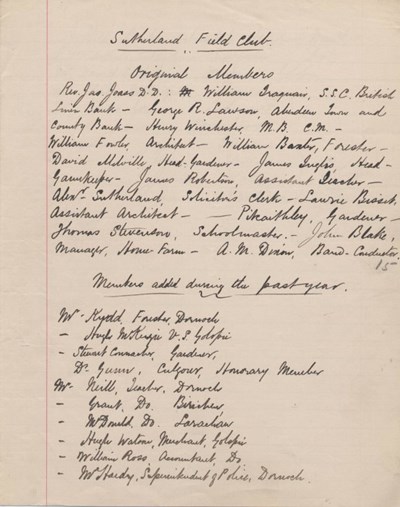 Sutherland Field Club.
Original Members
Rev. Jas. Jones D.D.: William Traquair, S.S.C. British
Linen Bank – George R. Lawson, Aberdeen Town and
County Bank – Henry Winchester, M.B. C.M. –
William Fowler, Architect – William Baxter, Forester –
David Melville, Head-Gardener – James Inglis, Head-
Gamekeeper – James Robertson, Assistant Teacher –
Alexr. Sutherland, Solicitor's Clerk – Lawrie Bisset,
Assistant Architect – – Pitkaithley, Gardener –
Thomas Stevenson, Schoolmaster. – John Blake,
Manager, Home Farm – A. M. Dixon, Band-Conductor.
15
Members added during the past year.
Mr. Kydd Forester, Dornoch
– Hugh McKenzie V.S. Golspie
– Stewart Gardener,
Dr. Gunn, Culgour, Honorary Member
Mr. Neill, Teacher, Dornoch
– Grant, Do. Birichen,
– McDonald, Do. Larachan
– Hugh Watson, Merchant, Golspie
– William Ross, Accountant, Do
– Mr Hardy, Superintendent of Police, Dornoch.